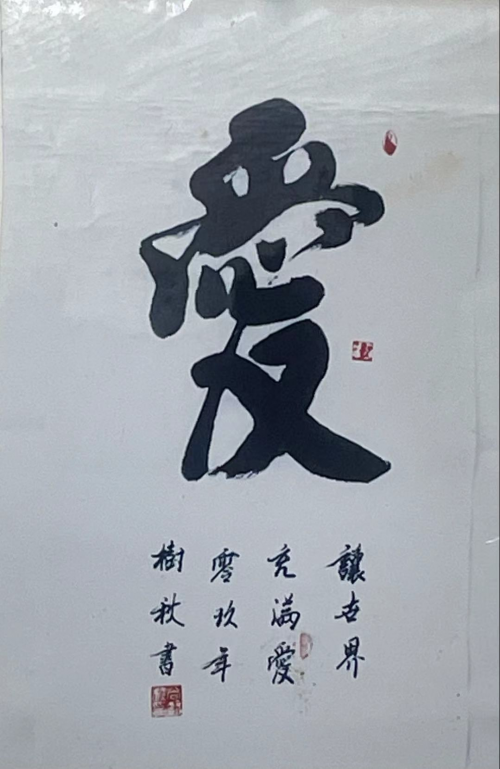 愛
讓世界
充滿愛
零玖年
樹秋書